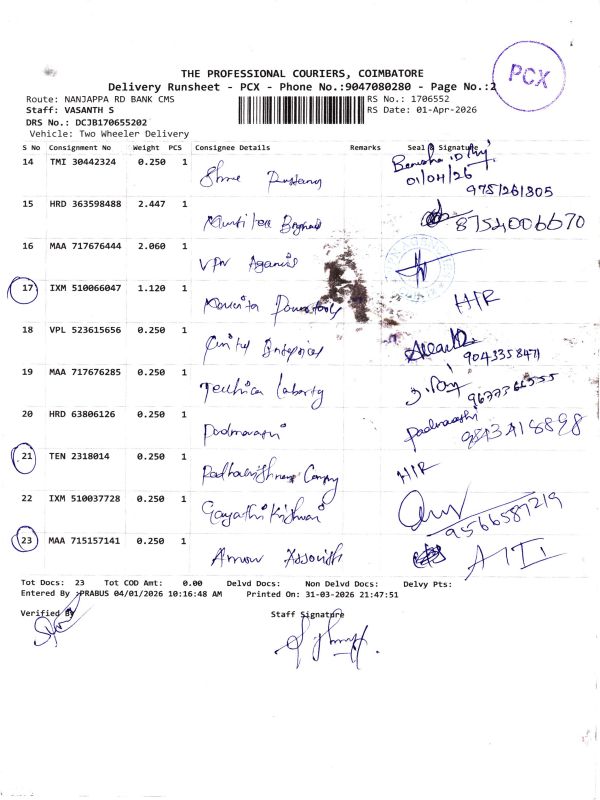 THE PROFESSIONAL COURIERS, COIMBATORE
Delivery Runsheet - PCX - Phone No.:9047080280 - Page No.:2
PCX
Route: NANJAPPA RD BANK CMS
RS No.: 1706552
Staff: VASANTH S
RS Date: 01-Apr-2026
DRS No.: DCJB170655202
Vehicle: Two Wheeler Delivery
S No Consignment No Weight PCS Consignee Details Remarks Seal & Signature
14 TMI 30442324 0.250 1 Shree
01/04/26
9751261805
15 HRD 363598488 2.447 1 8754006670
16 MAA 717676444 2.060 1 VPN
17 IXM 510066047 1.120 1 HIR
18 VPL 523615656 0.250 1
9043358471
19 MAA 717676285 0.250 1 Technica
20 HRD 63806126 0.250 1 Padmavathi
21 TEN 2318014 0.250 1 Radhakrishnan Company HIR
22 IXM 510037728 0.250 1 Gayathri Krishnan
9566587219
23 MAA 715157141 0.250 1
Tot Docs: 23 Tot COD Amt: 0.00 Delvd Docs: Non Delvd Docs: Delvy Pts:
Entered By :PRABUS 04/01/2026 10:16:48 AM Printed On: 31-03-2026 21:47:51
Verified By
Staff Signature